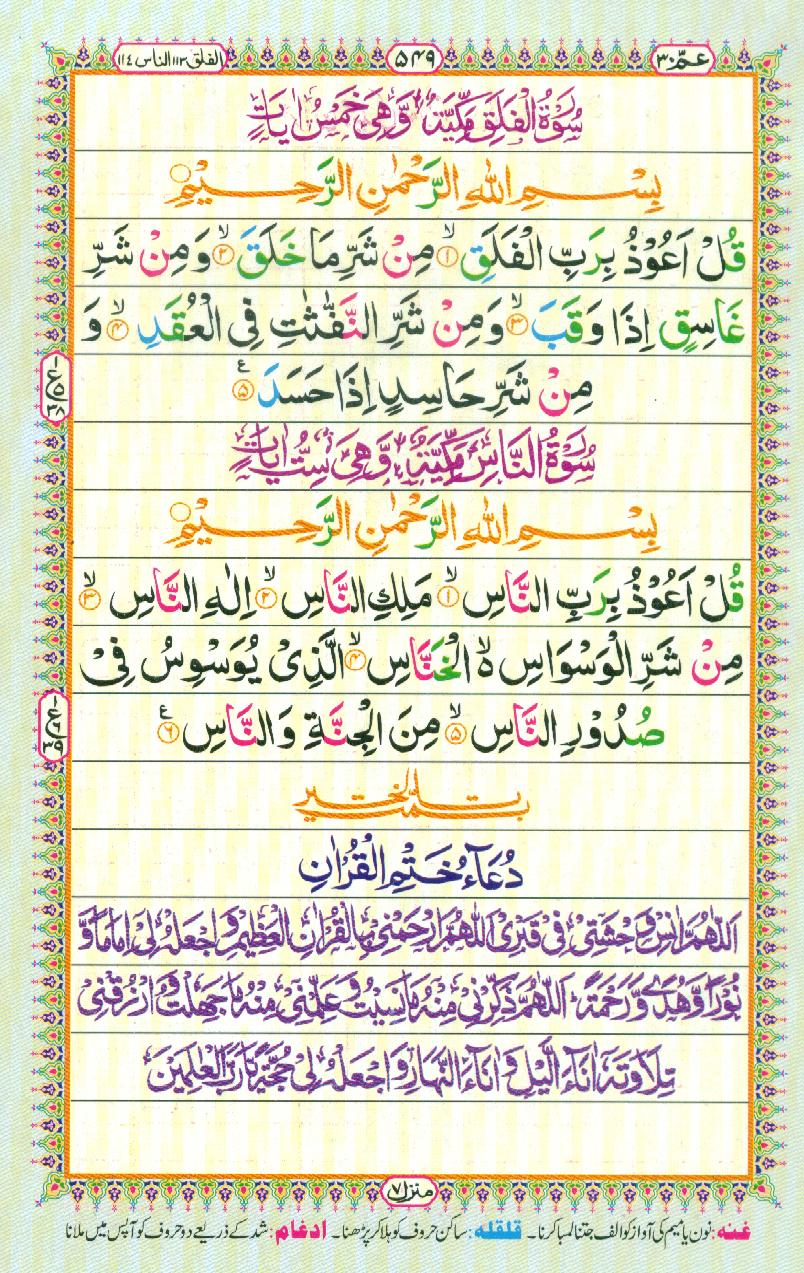 عمّ ٣٠
٥٤٩
الفلق ١١٣ الناس ١١٤
سُوْرَةُ الْفَلَقِ مَكِّيَّةٌ وَّهِیَ خَمْسُ اٰيَاتٍ
بِسْمِ اللّٰهِ الرَّحْمٰنِ الرَّحِيْمِ
قُلْ اَعُوْذُ بِرَبِّ الْفَلَقِ ۙ﴿١﴾ مِنْ شَرِّ مَا خَلَقَ ۙ﴿٢﴾ وَ مِنْ شَرِّ
غَاسِقٍ اِذَا وَقَبَ ۙ﴿٣﴾ وَ مِنْ شَرِّ النَّفّٰثٰتِ فِی الْعُقَدِ ۙ﴿٤﴾ وَ
مِنْ شَرِّ حَاسِدٍ اِذَا حَسَدَ ﴿٥﴾ ع
سُوْرَةُ النَّاسِ مَكِّيَّةٌ وَّهِیَ سِتُّ اٰيَاتٍ
بِسْمِ اللّٰهِ الرَّحْمٰنِ الرَّحِيْمِ
قُلْ اَعُوْذُ بِرَبِّ النَّاسِ ۙ﴿١﴾ مَلِكِ النَّاسِ ۙ﴿٢﴾ اِلٰهِ النَّاسِ ۙ﴿٣﴾
مِنْ شَرِّ الْوَسْوَاسِ ۙ۬ الْخَنَّاسِ ۙ﴿٤﴾ الَّذِیْ يُوَسْوِسُ فِیْ
صُدُوْرِ النَّاسِ ۙ﴿٥﴾ مِنَ الْجِنَّةِ وَ النَّاسِ ﴿٦﴾ ع
دُعَآءُ خَتْمِ الْقُرْاٰنِ
اَللّٰهُمَّ اٰنِسْ وَحْشَتِیْ فِیْ قَبْرِیْ اَللّٰهُمَّ ارْحَمْنِیْ بِالْقُرْاٰنِ الْعَظِيْمِ وَاجْعَلْهُ لِیْ اِمَامًا وَّ
نُوْرًا وَّ هُدًی وَّ رَحْمَةً اَللّٰهُمَّ ذَكِّرْنِیْ مِنْهُ مَا نَسِيْتُ وَ عَلِّمْنِیْ مِنْهُ مَا جَهِلْتُ وَارْزُقْنِیْ
تِلَاوَتَهٗ اٰنَآءَ الَّيْلِ وَ اٰنَآءَ النَّهَارِ وَاجْعَلْهُ لِیْ حُجَّةً يَّا رَبَّ الْعٰلَمِيْنَ
منزل ٧
غنہ: نون یا میم کی آواز کو الف جتنا لمبا کرنا۔ قلقلہ: ساکن حروف کو ہلا کر پڑھنا۔ ادغام: شد کے ذریعے دو حروف کو آپس میں ملانا